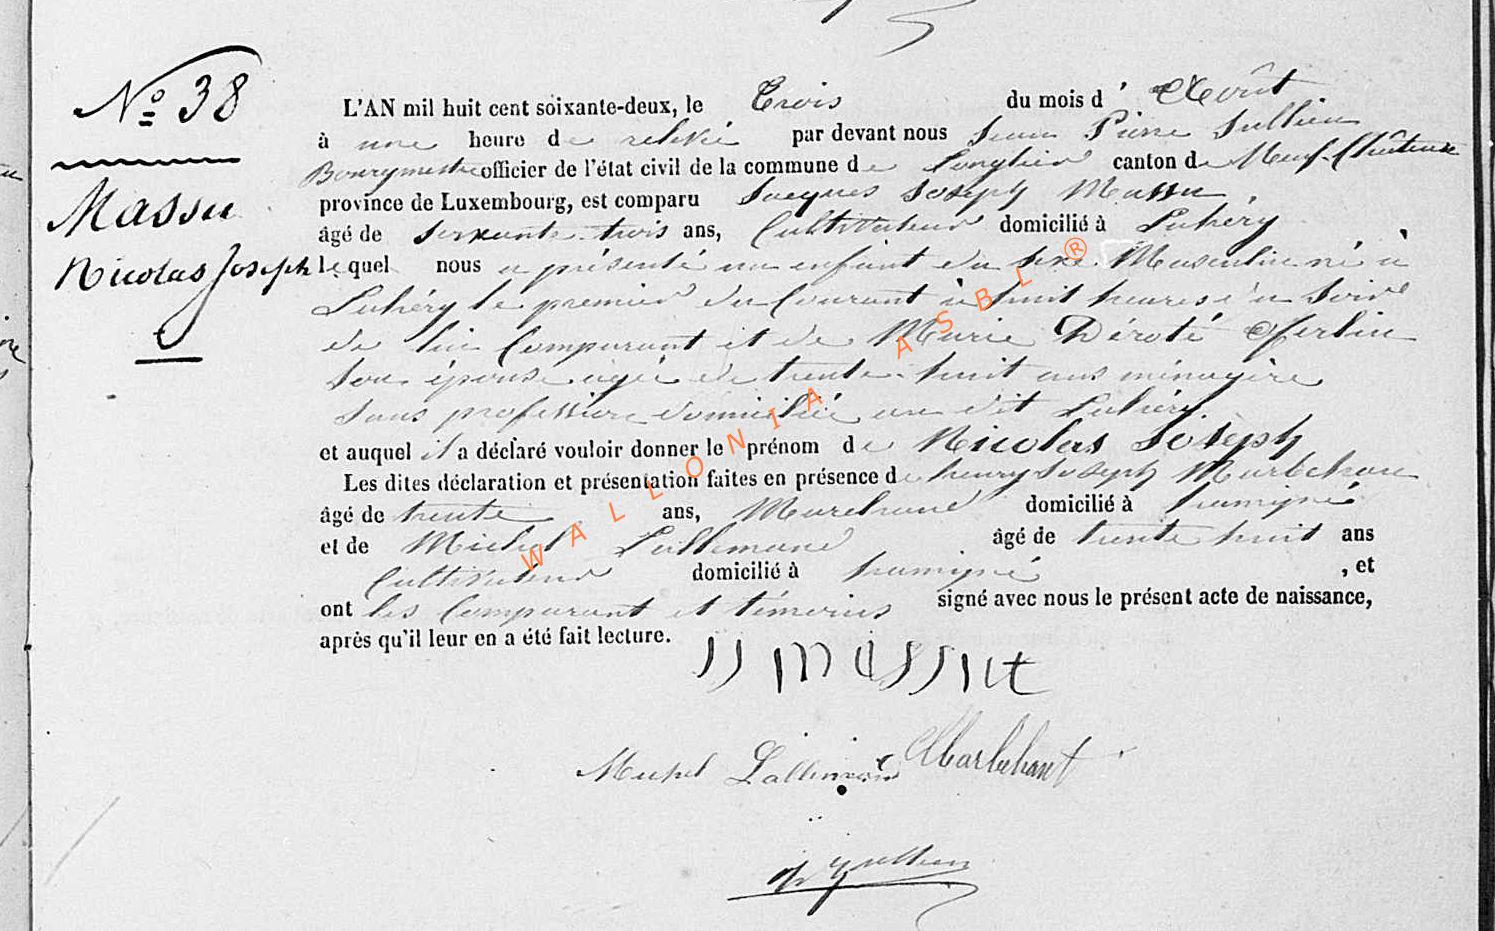 N° 38
Massu
Nicolas Joseph
L'AN mil huit cent soixante-deux, le Trois du mois d'Août
à une heure de relevée par devant nous Jean Pierre Jullien
Bourgmestre officier de l'état civil de la commune de Longlier canton de Neuf-Château
province de Luxembourg, est comparu Jacques Joseph Massu
âgé de soixante-trois ans, Cultivateur domicilié à Lahéry
lequel nous a présenté un enfant du sexe Masculin né à
Lahéry le premier du Courant à huit heures du Soir
de lui Comparant et de Marie Déroté
son épouse âgée de trente-huit ans ménagère
sans profession domiciliée au dit Lahéry.
et auquel il a déclaré vouloir donner le prénom de Nicolas Joseph
Les dites déclaration et présentation faites en présence de henry Joseph Marbehan
âgé de trente ans, Marchand domicilié à hamipré
et de Michel Lallemand âgé de trente huit ans
Cultivateur domicilié à hamipré, et
ont les Comparant et témoins signé avec nous le présent acte de naissance,
après qu'il leur en a été fait lecture.
JJ massut
Michel Lallemand Marbehant
WALLONIA ASBL ®